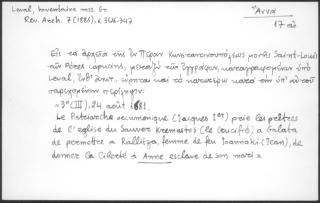 Laval, Inventaire mss. Gr.
Rev. Arch. 7 (1886), σ. 346-347
Ἄννα
17 αἰ.
Εἰς τὰ ἀρχεῖα τῆς ἐν Πέραν Κωνσταντινουπόλεως μονῆς Saint-Louis
τῶν Pères capucins, μεταξὺ τῶν ἐγγράφων, καταγραφομένων ὑπὸ
Laval, εὑρίσκεται καὶ τὸ κατωτέρω κατὰ τὴν ὑπ' αὐτοῦ
παρεχομένην περίληψιν:
«3º (III), 24 août 1681.
Le Patriarche œcumenique (Jacques Ier) prie les prêtres
de l'eglise du Sauveur Kremastos (le Crucifié) a Galata
de permettre a Rallitza, femme de feu Ioannaki (Jean), de
donner la liberté à Anne, esclave de son mari»